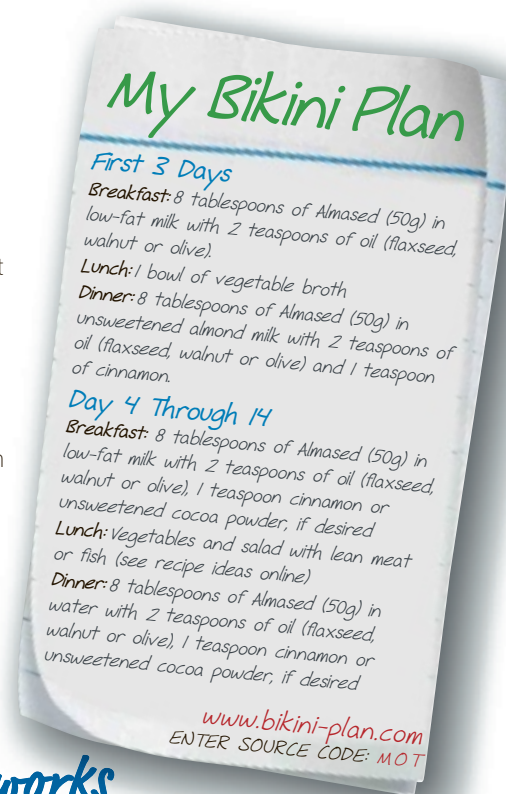 My Bikini Plan
First 3 Days
Breakfast: 8 tablespoons of Almased (50g) in
low-fat milk with 2 teaspoons of oil (flaxseed,
walnut or olive).
Lunch: 1 bowl of vegetable broth
Dinner: 8 tablespoons of Almased (50g) in
unsweetened almond milk with 2 teaspoons of
oil (flaxseed, walnut or olive) and 1 teaspoon
of cinnamon.
Day 4 Through 14
Breakfast: 8 tablespoons of Almased (50g) in
low-fat milk with 2 teaspoons of oil (flaxseed,
walnut or olive), 1 teaspoon cinnamon or
unsweetened cocoa powder, if desired
Lunch: Vegetables and salad with lean meat
or fish (see recipe ideas online)
Dinner: 8 tablespoons of Almased (50g) in
water with 2 teaspoons of oil (flaxseed,
walnut or olive), 1 teaspoon cinnamon or
unsweetened cocoa powder, if desired
www.bikini-plan.com
ENTER SOURCE CODE: MOT
works